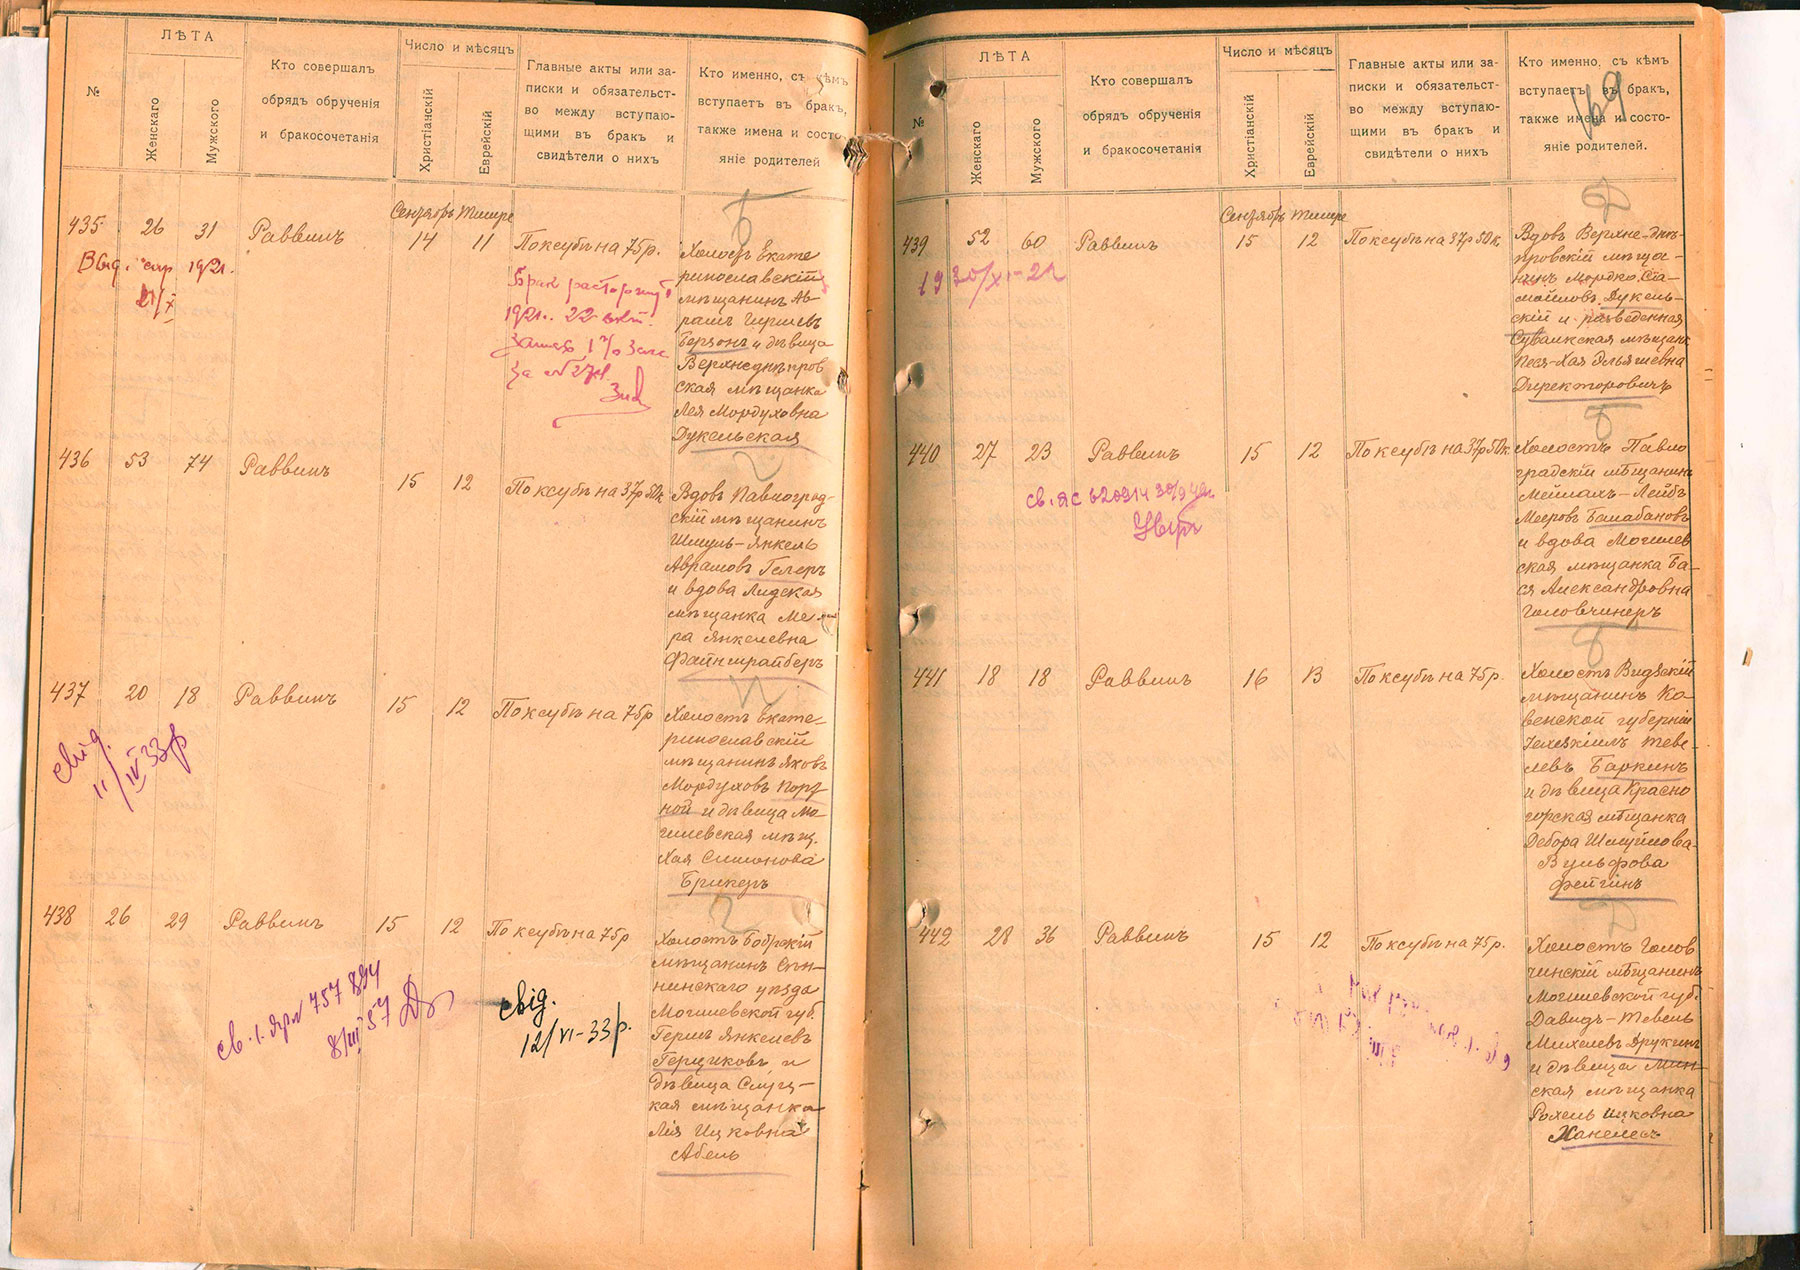 №
ЛѢТА
Женскаго
Мужского
Кто совершалъ
обрядъ обрученія
и бракосочетанія
Число и мѣсяцъ
Христіанскій
Еврейскій
Главные акты или за-
писки и обязательст-
во между вступаю-
щими въ бракъ и
свидѣтели о нихъ
Кто именно, съ кѣмъ
вступаетъ въ бракъ,
также имена и состо-
яніе родителей
435 26 31 Раввинъ
Сентябрь Тишре
14 11
По ксубѣ на 75р.
Холостъ Екате
ринославскій
мѣщанинъ Ав-
рамъ Гиршевъ
Берзонъ и дѣвица
Верхнеднѣпров
ская мѣщанка
Лея Мордуховна
Дукельская
1921.
21/X
Брак расторгнут
1921. 22
436 53 74 Раввинъ 15 12 По ксубѣ на 37р 50к
Вдовъ Павлоград-
скій мѣщанинъ
Шмуль-Янкель
Аврамовъ Гелеръ
и вдова Лидская
мѣщанка Ме-
ра Янкелевна
Файнштрайберъ
437 20 18 Раввинъ 15 12 По ксубѣ на 75р
Холостъ Екате-
ринославскій
мѣщанинъ Яковъ
Мордуховъ Порт
ной и дѣвица Мо-
гилевская мѣщ.
Хая Симонова
Брикеръ
свід.
11/IV 33р
438 26 29 Раввинъ 15 12 По ксубѣ на 75р
Холостъ Бобрскій
мѣщанинъ Сѣн-
нинскаго уѣзда
Могилевской губ.
Гершъ Янкелевъ
Герциковъ и
дѣвица Слуц-
кая мѣщанка
Лія Ицковна
Абель
757 894
8/III 57
свід.
12/VI-33р.
№
ЛѢТА
Женскаго
Мужского
Кто совершалъ
обрядъ обрученія
и бракосочетанія
Число и мѣсяцъ
Христіанскій
Еврейскій
Главные акты или за-
писки и обязательст-
во между вступаю-
щими въ бракъ и
свидѣтели о нихъ
Кто именно, съ кѣмъ
вступаетъ въ бракъ,
также имена и состо-
яніе родителей.
169
439 52 60 Раввинъ
Сентябрь Тишре
15 12
По ксубѣ на 37р 50к.
Вдовъ Верхне-днѣ-
провскій мѣща-
нинъ Мордко Са-
мойловъ Дукель-
скій и разведенная
Сувалкская мѣщанк
Песя-Хая Эльяшевна
Директоровичъ
440 27 23 Раввинъ 15 12 По ксубѣ на 37р 50к.
Холостъ Павло
градскій мѣщанинъ
Мейлахъ-Лейбъ
Мееровъ Балабановъ
и вдова Могилев
ская мѣщанка Ба-
ся Александровна
Головчинеръ
441 18 18 Раввинъ 16 13 По ксубѣ на 75р.
Холостъ Видзскій
мѣщанинъ Ко-
венской губерніи
Тове-
левъ Баркинъ
и дѣвица Красно
горская мѣщанка
Дебора Шмуйлова-
Вульфова
Фейгинъ
442 28 36 Раввинъ 15 12 По ксубѣ на 75р.
Холостъ Голов
чинскій мѣщанинъ
Могилевской губ.
Давидъ-Тевель
Михелевъ Друкинъ
и дѣвица Мин-
ская мѣщанка
Рохель Ицковна
Ханелесъ